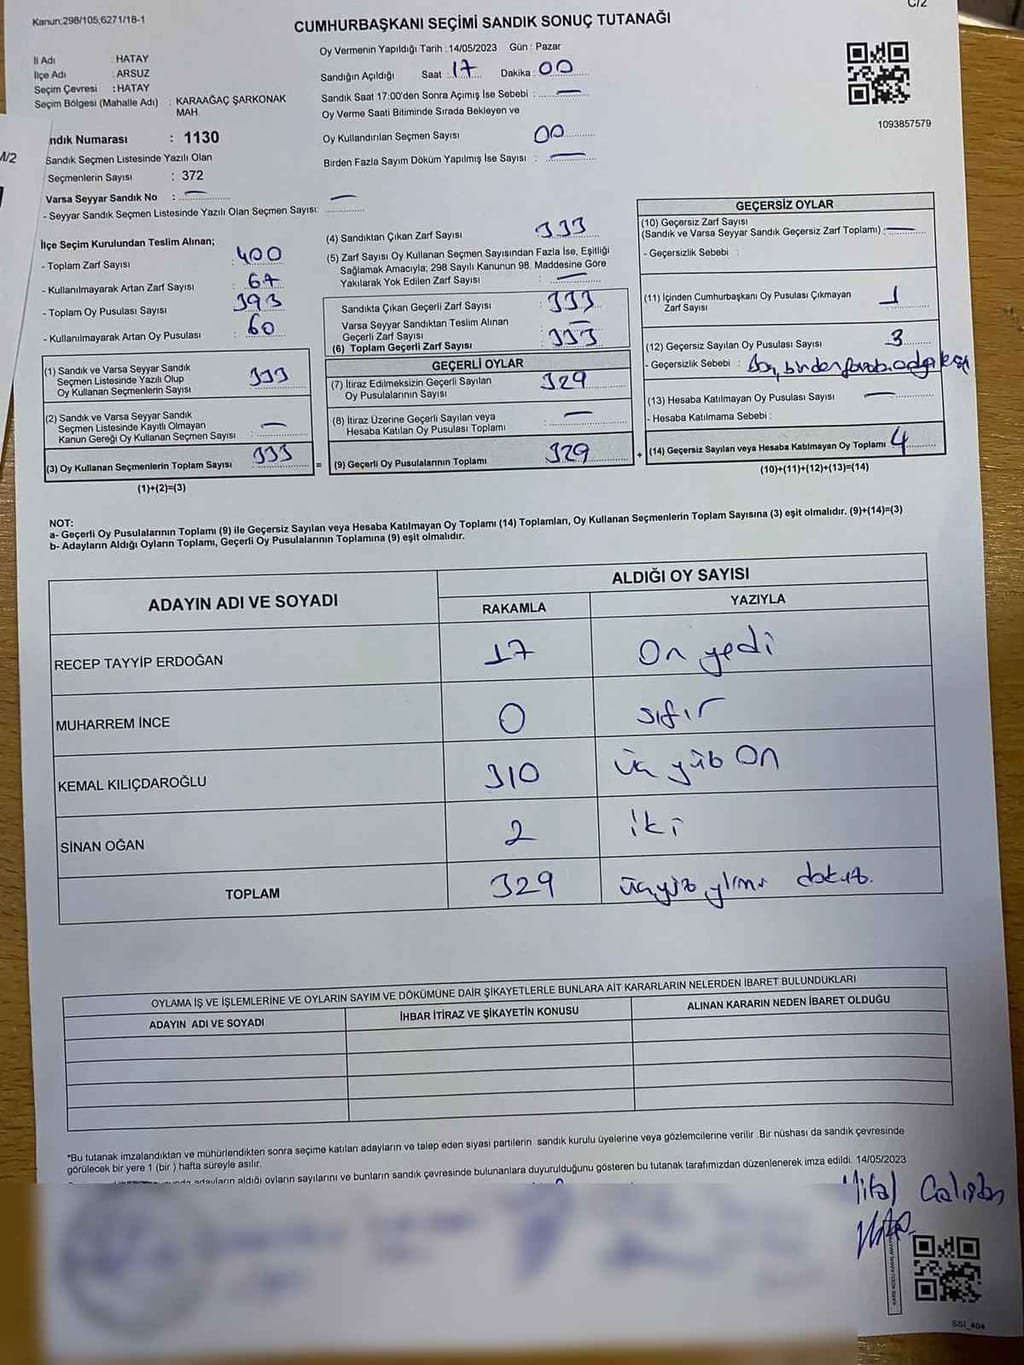 Kanun;298/105,6271/18-1
C/2
CUMHURBAŞKANI SEÇİMİ SANDIK SONUÇ TUTANAĞI
İl Adı : HATAY
İlçe Adı : ARSUZ
Seçim Çevresi : HATAY
Seçim Bölgesi (Mahalle Adı) : KARAAĞAÇ ŞARKONAK
MAH.
ndık Numarası : 1130
Sandık Seçmen Listesinde Yazılı Olan
Seçmenlerin Sayısı : 372
Varsa Seyyar Sandık No : —
- Seyyar Sandık Seçmen Listesinde Yazılı Olan Seçmen Sayısı: —
Oy Vermenin Yapıldığı Tarih :14/05/2023 Gün : Pazar
Sandığın Açıldığı Saat : 17 Dakika : 00
Sandık Saat 17:00'den Sonra Açımış İse Sebebi : —
Oy Verme Saati Bitiminde Sırada Bekleyen ve
Oy Kullandırılan Seçmen Sayısı 00
Birden Fazla Sayım Döküm Yapılmış İse Sayısı : —
1093857579
M/2
İlçe Seçim Kurulundan Teslim Alınan;
- Toplam Zarf Sayısı : 400
- Kullanılmayarak Artan Zarf Sayısı : 67
- Toplam Oy Pusulası Sayısı : 393
- Kullanılmayarak Artan Oy Pusulası : 60
(1) Sandık ve Varsa Seyyar Sandık
Seçmen Listesinde Yazılı Olup
Oy Kullanan Seçmenlerin Sayısı 333
(2) Sandık ve Varsa Seyyar Sandık
Seçmen Listesinde Kayıtlı Olmayan
Kanun Gereği Oy Kullanan Seçmen Sayısı : —
(3) Oy Kullanan Seçmenlerin Toplam Sayısı 333
(1)+(2)=(3)
(4) Sandıktan Çıkan Zarf Sayısı : 333
(5) Zarf Sayısı Oy Kullanan Seçmen Sayısından Fazla İse, Eşitliği
Sağlamak Amacıyla; 298 Sayılı Kanunun 98. Maddesine Göre
Yakılarak Yok Edilen Zarf Sayısı : —
Sandıkta Çıkan Geçerli Zarf Sayısı : 333
Varsa Seyyar Sandıktan Teslim Alınan
Geçerli Zarf Sayısı : —
(6) Toplam Geçerli Zarf Sayısı : 333
GEÇERLİ OYLAR
(7) İtiraz Edilmeksizin Geçerli Sayılan
Oy Pusulalarının Sayısı : 329
(8) İtiraz Üzerine Geçerli Sayılan veya
Hesaba Katılan Oy Pusulası Toplamı : —
= (9) Geçerli Oy Pusulalarının Toplamı 329 +
GEÇERSİZ OYLAR
(10) Geçersiz Zarf Sayısı
(Sandık ve Varsa Seyyar Sandık Geçersiz Zarf Toplamı) : —
- Geçersizlik Sebebi :
(11) İçinden Cumhurbaşkanı Oy Pusulası Çıkmayan
Zarf Sayısı 1
(12) Geçersiz Sayılan Oy Pusulası Sayısı 3
- Geçersizlik Sebebi : Boş, birden fazla
(13) Hesaba Katılmayan Oy Pusulası Sayısı —
- Hesaba Katılmama Sebebi :
(14) Geçersiz Sayılan veya Hesaba Katılmayan Oy Toplamı 4
(10)+(11)+(12)+(13)=(14)
NOT:
a- Geçerli Oy Pusulalarının Toplamı (9) ile Geçersiz Sayılan veya Hesaba Katılmayan Oy Toplamı (14) Toplamları, Oy Kullanan Seçmenlerin Toplam Sayısına (3) eşit olmalıdır. (9)+(14)=(3)
b- Adayların Aldığı Oyların Toplamı, Geçerli Oy Pusulalarının Toplamına (9) eşit olmalıdır.
ADAYIN ADI VE SOYADI
ALDIĞI OY SAYISI
RAKAMLA YAZIYLA
RECEP TAYYİP ERDOĞAN 17 On yedi
MUHARREM İNCE 0 sıfır
KEMAL KILIÇDAROĞLU 310 üç yüz On
SİNAN OĞAN 2 iki
TOPLAM 329 üçyüz yirmi dokuz.
OYLAMA İŞ VE İŞLEMLERİNE VE OYLARIN SAYIM VE DÖKÜMÜNE DAİR ŞİKAYETLERLE BUNLARA AİT KARARLARIN NELERDEN İBARET BULUNDUKLARI
ADAYIN ADI VE SOYADI İHBAR İTİRAZ VE ŞİKAYETİN KONUSU ALINAN KARARIN NEDEN İBARET OLDUĞU
*Bu tutanak imzalandıktan ve mühürlendikten sonra seçime katılan adayların ve talep eden siyasi partilerin sandık kurulu üyelerine veya gözlemcilerine verilir .Bir nüshası da sandık çevresinde
görülecek bir yere 1 (bir ) hafta süreyle asılır.
adayların aldığı oyların sayılarını ve bunların sandık çevresinde bulunanlara duyurulduğunu gösteren bu tutanak tarafımızdan düzenlenerek imza edildi. 14/05/2023
Çalışkan
SSI_404